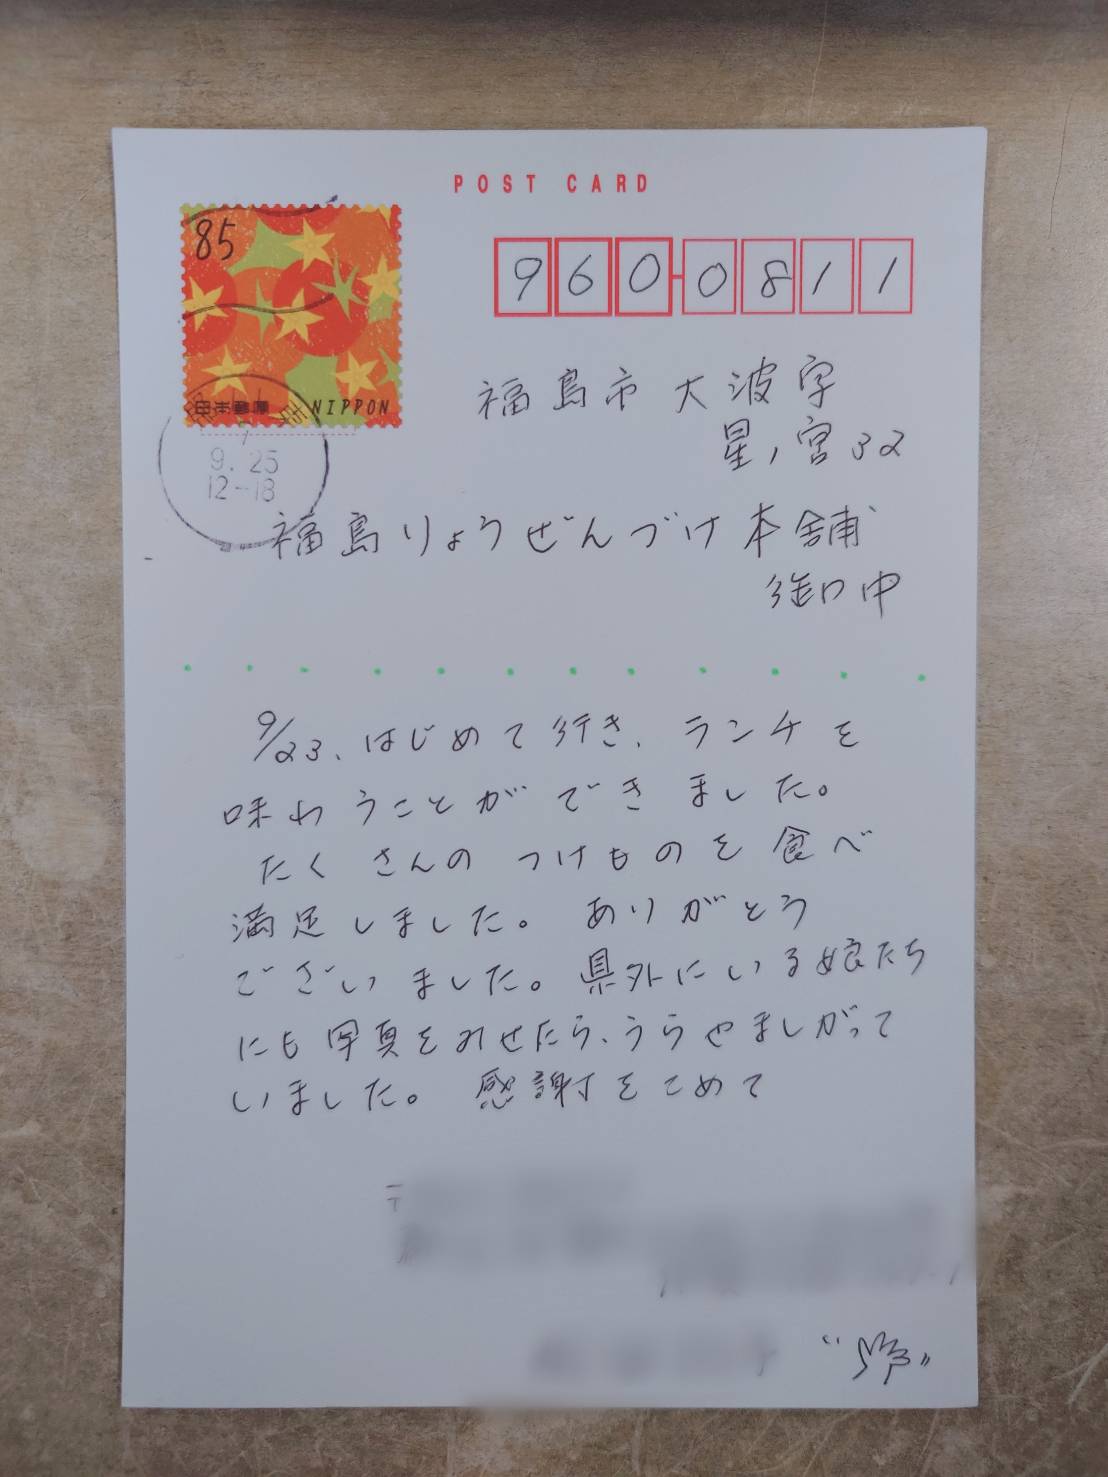 POST CARD
85
日本郵便 NIPPON
9.25
12-18
960-0811
福島市大波字
星ノ宮32
福島りょうぜんづけ本舗
御中
9/23、はじめて行き、ランチを
味わうことができました。
たくさんのつけものを食べ
満足しました。ありがとう
ございました。県外にいる娘たち
にも写真をみせたら、うらやましがって
いました。感謝をこめて
〒